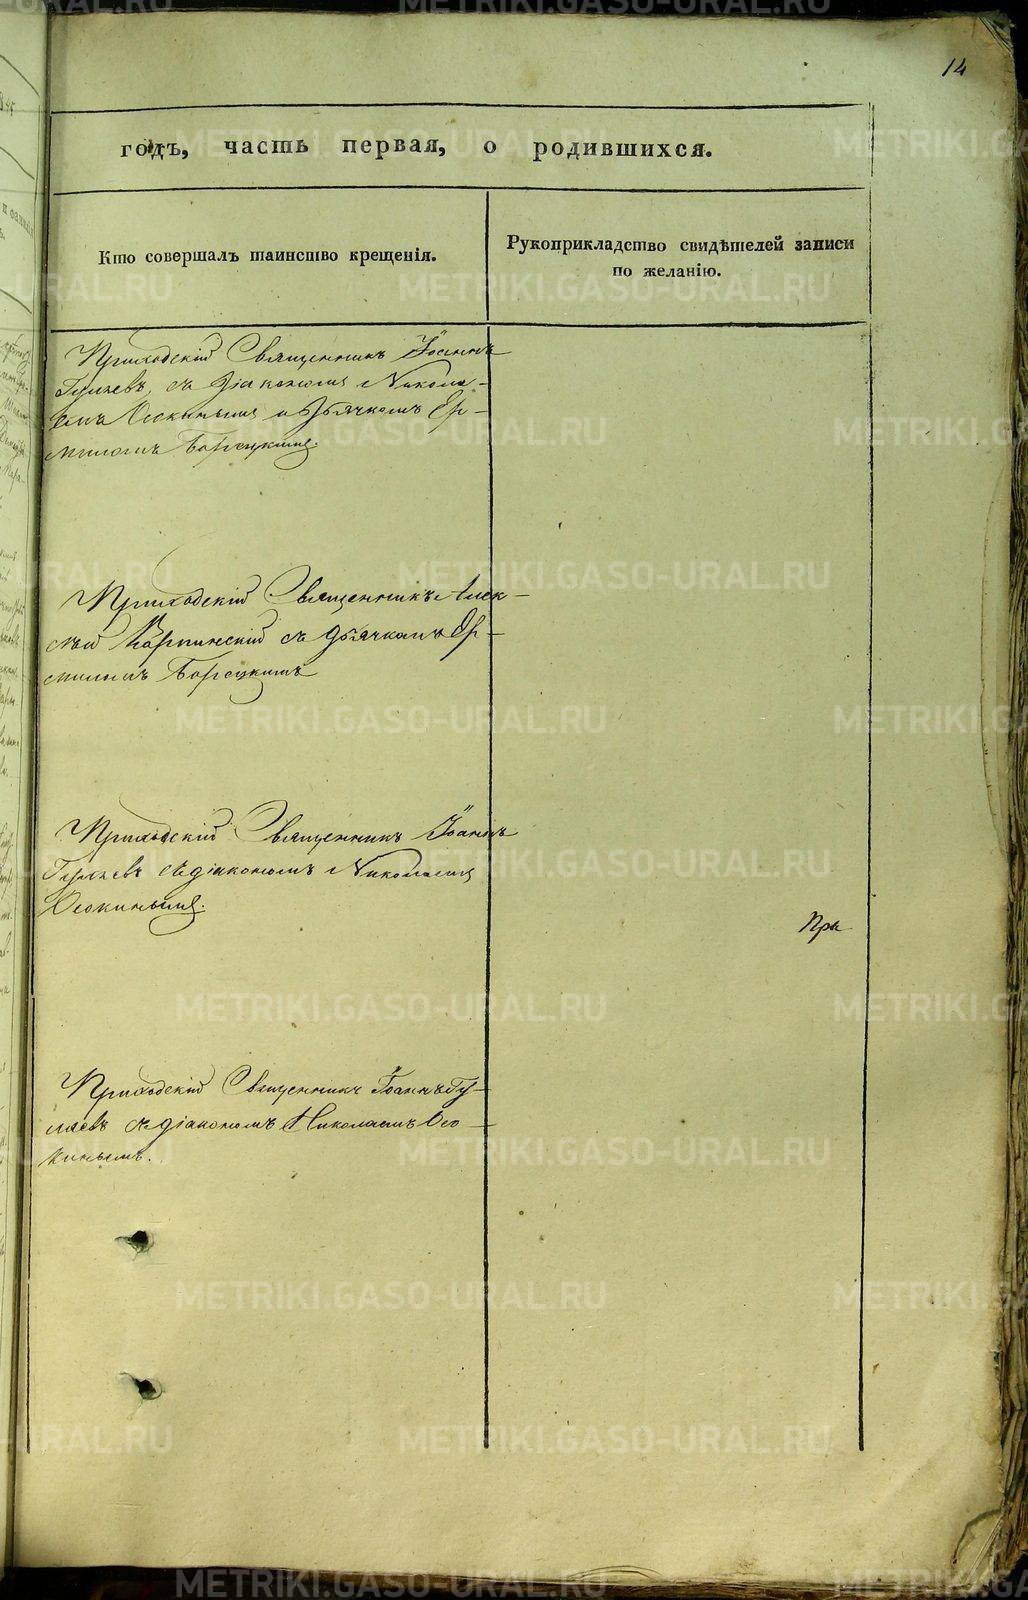 14
годъ, часть первая, о родившихся.
Кто совершалъ таинство крещенія.
Рукоприкладство свидѣтелей записи
по желанію.
Приходскій Священникъ Іоаннъ
Гуляевъ, съ діакономъ Никола-
емъ Осокинымъ и дьячкомъ Ер-
миломъ Борецкимъ.
Приходскій Священникъ Алек-
сѣй Карпинскій съ дьячкомъ Ер-
миломъ Борецкимъ
Приходскій Священникъ Іоаннъ
Гуляевъ съ діакономъ Николаемъ
Осокинымъ.
При
Приходскій Священникъ Іоаннъ Гу-
ляевъ съ діакономъ Николаемъ Осо-
кинымъ.
METRIKI.GASO-URAL.RU